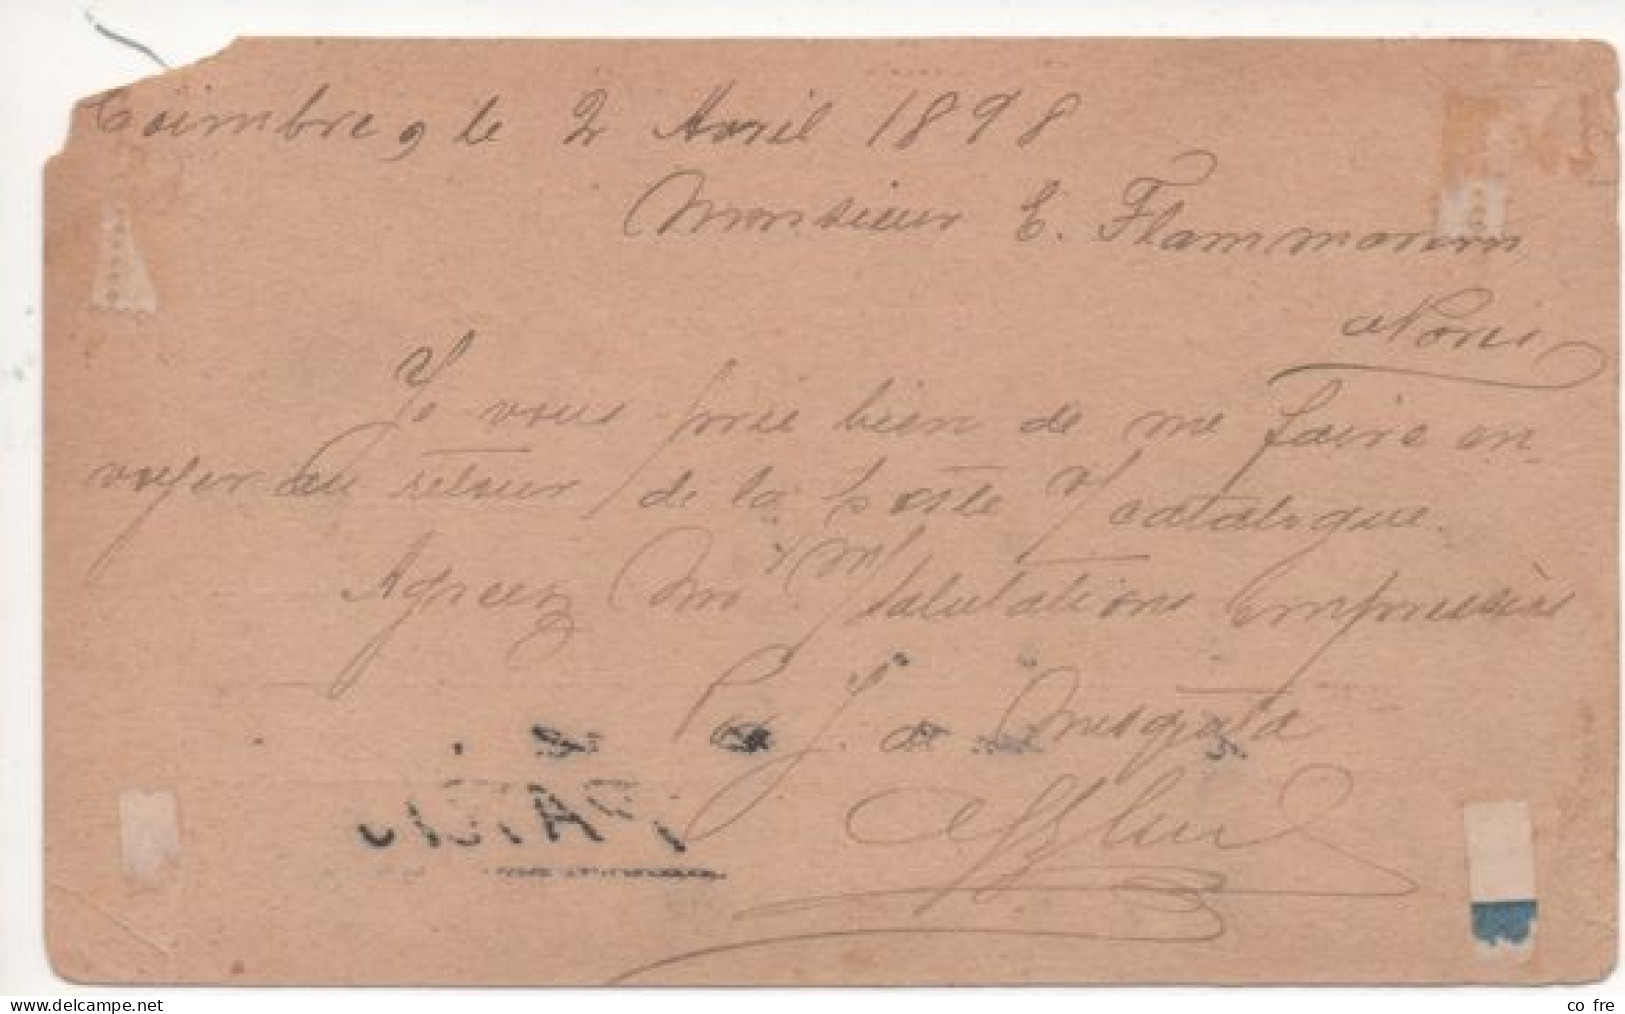 Coimbre, le 2 Avril 1898
Monsieur E. Flammarion
a Paris
Je vous prie bien de me faire en-
voyer au retour de la poste v/ catalogue.
Agreez Mr m/ salutations empressées
J. a Mesquita
www.delcampe.net
co fre